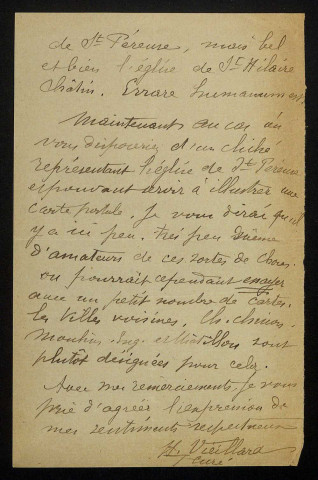 de St Péreuse, mais bel
et bien l'église de St Hilaire
Châtin. Errare humanum est.
Maintenant au cas où
vous disposeriez d'un cliché
représentant l'église de St Péreuse
et pouvant servir à illustrer une
carte postale. Je vous dirai qu'il
y a ici peu, très peu même
d'amateurs de ces sortes de choses.
on pourrait cependant essayer
avec un petit nombre de cartes.
les villes voisines. Ch. Chinon,
Moulins-Eng. et Chatillon sont
plutôt désignées pour cela.
Avec mes remerciements, je vous
prie d'agréer l'expression de
mes sentiments respectueux
Vieillard
curé